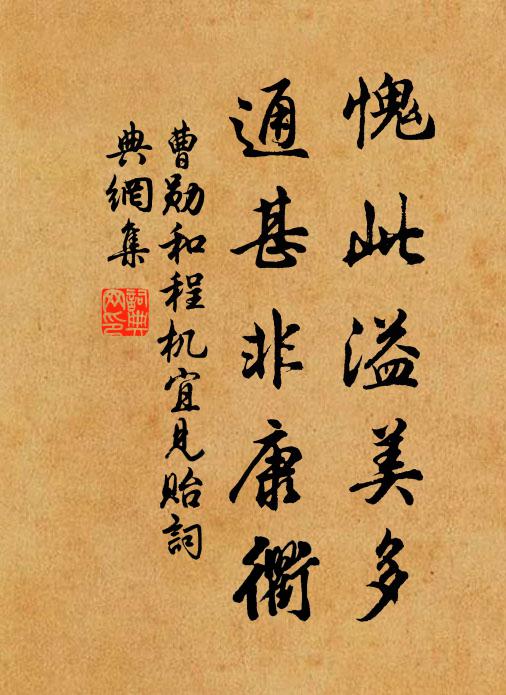 愧此溢美多
通甚非康衢
曹勋和程机宜见贻詞
典網集
詞典
网印